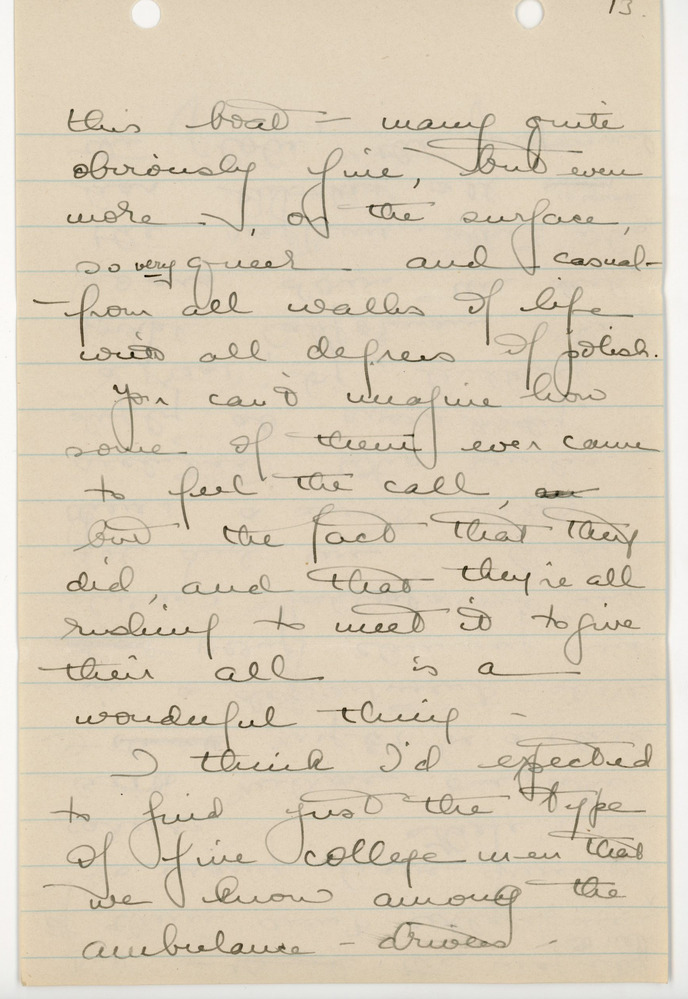 13.
this boat - many quite
obviously fine, but even
more -, on the surface,
so very queer - and casual -
- from all walks of life
with all degrees of polish.
You can't imagine how
some of them ever came
to feel the call,
but the fact that they
did, and that they're all
rushing to meet it to give
their all is a
wonderful thing -
I think I'd expected
to find just the type
of fine college men that
we know among the
ambulance - drivers -